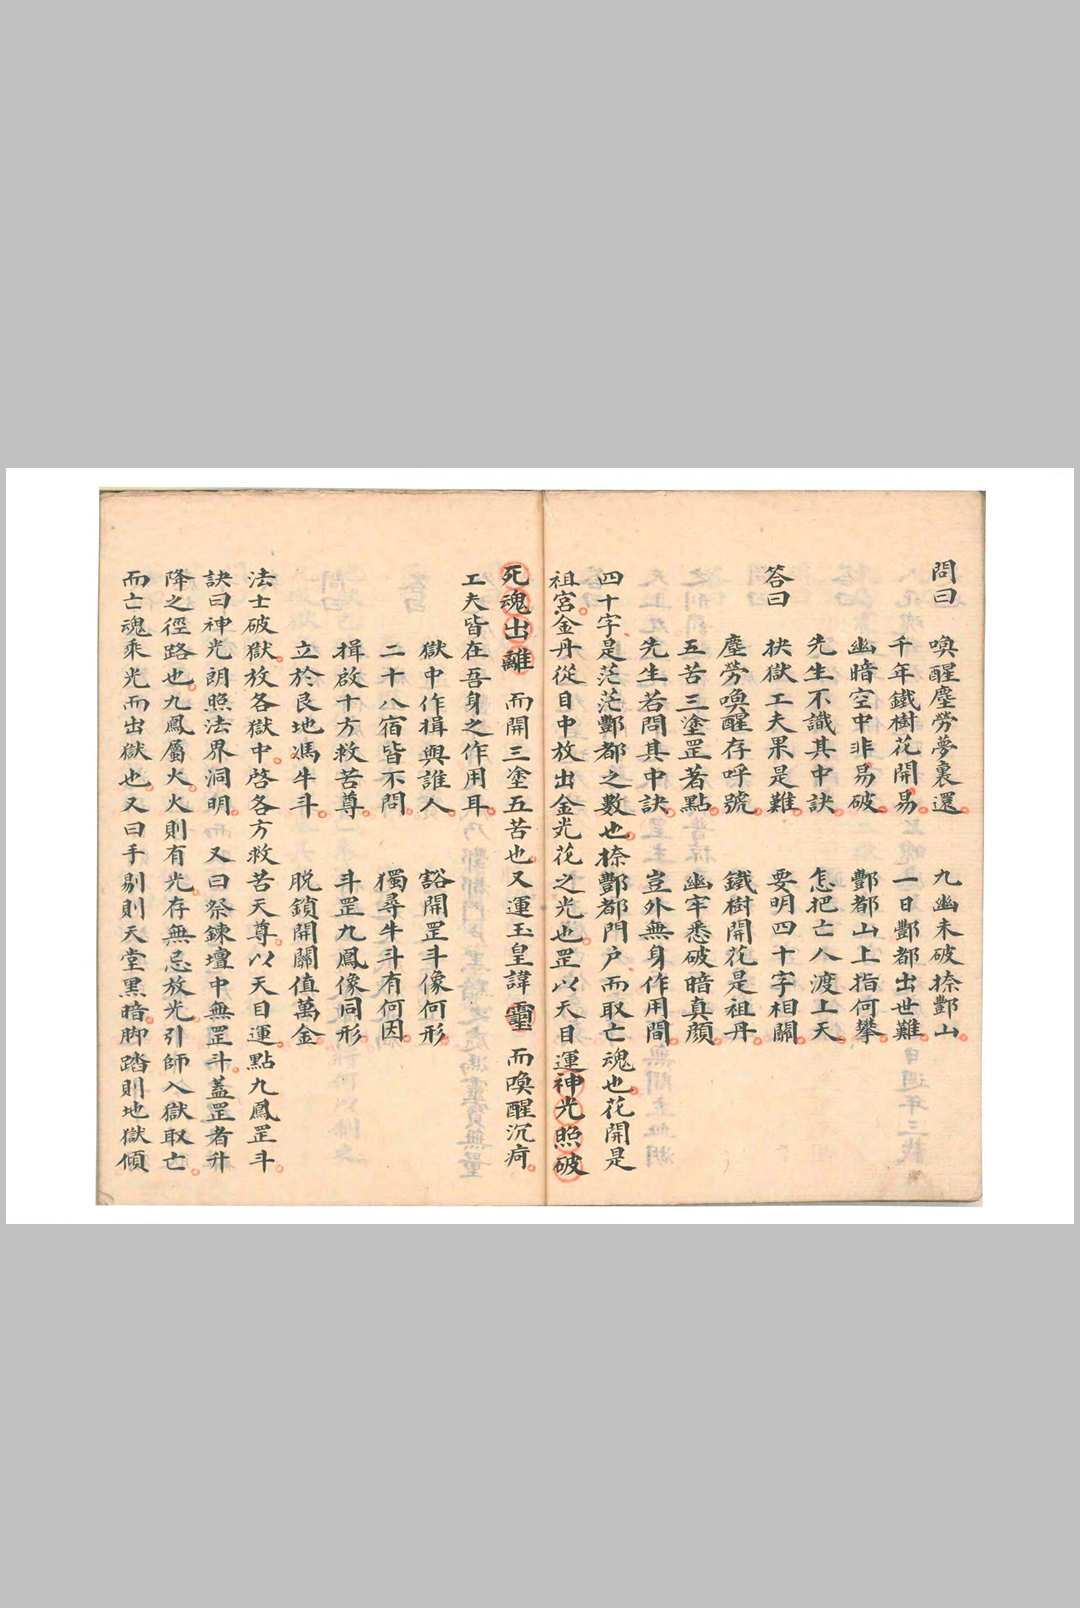 問曰　喚醒塵勞夢裏還　九幽未破捺酆山
千年鐵樹花開易　一日酆都出世難
幽暗空中非易破　酆都山上指何攀
先生不識其中訣　怎把亡人渡上天
答曰　抉獄工夫果是難　要明四十字相關
塵勞喚醒存呼號　鐵樹開花是祖丹
五苦三塗罡著點　幽牢悉破暗真顏
先生若問其中訣　豈外無身作用間
四十字是茫茫酆都之數也捺酆都門户而取亡魂也花開是
祖宮金丹從目中放出金光花之光也罡以天目運神光照破
死魂出離　而開三塗五苦也又運玉皇諱　而喚醒沉疴
工夫皆在吾身之作用耳
獄中作揖與誰人　豁開罡斗像何形
二十八宿皆不問　獨尋牛斗有何因
揖啟十方救苦尊　斗罡九鳳像同形
立於艮地馮牛斗　脱鎖開關值萬金
法士破獄放各獄中啓各方救苦天尊以天目運點九鳳罡斗
訣曰神光朗照法界洞明又曰祭鍊壇中無罡斗蓋罡者升
降之徑路也九鳳屬火火則有光存無忌放光引師入獄取亡
而亡魂乘光而出獄也又曰手剔則天堂黑暗脚踏則地獄傾